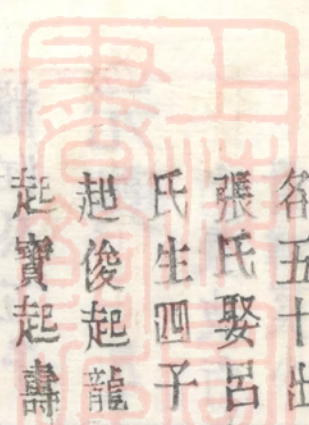 五十出
張氏娶呂
氏生四子
起俊起龍
起寶起壽